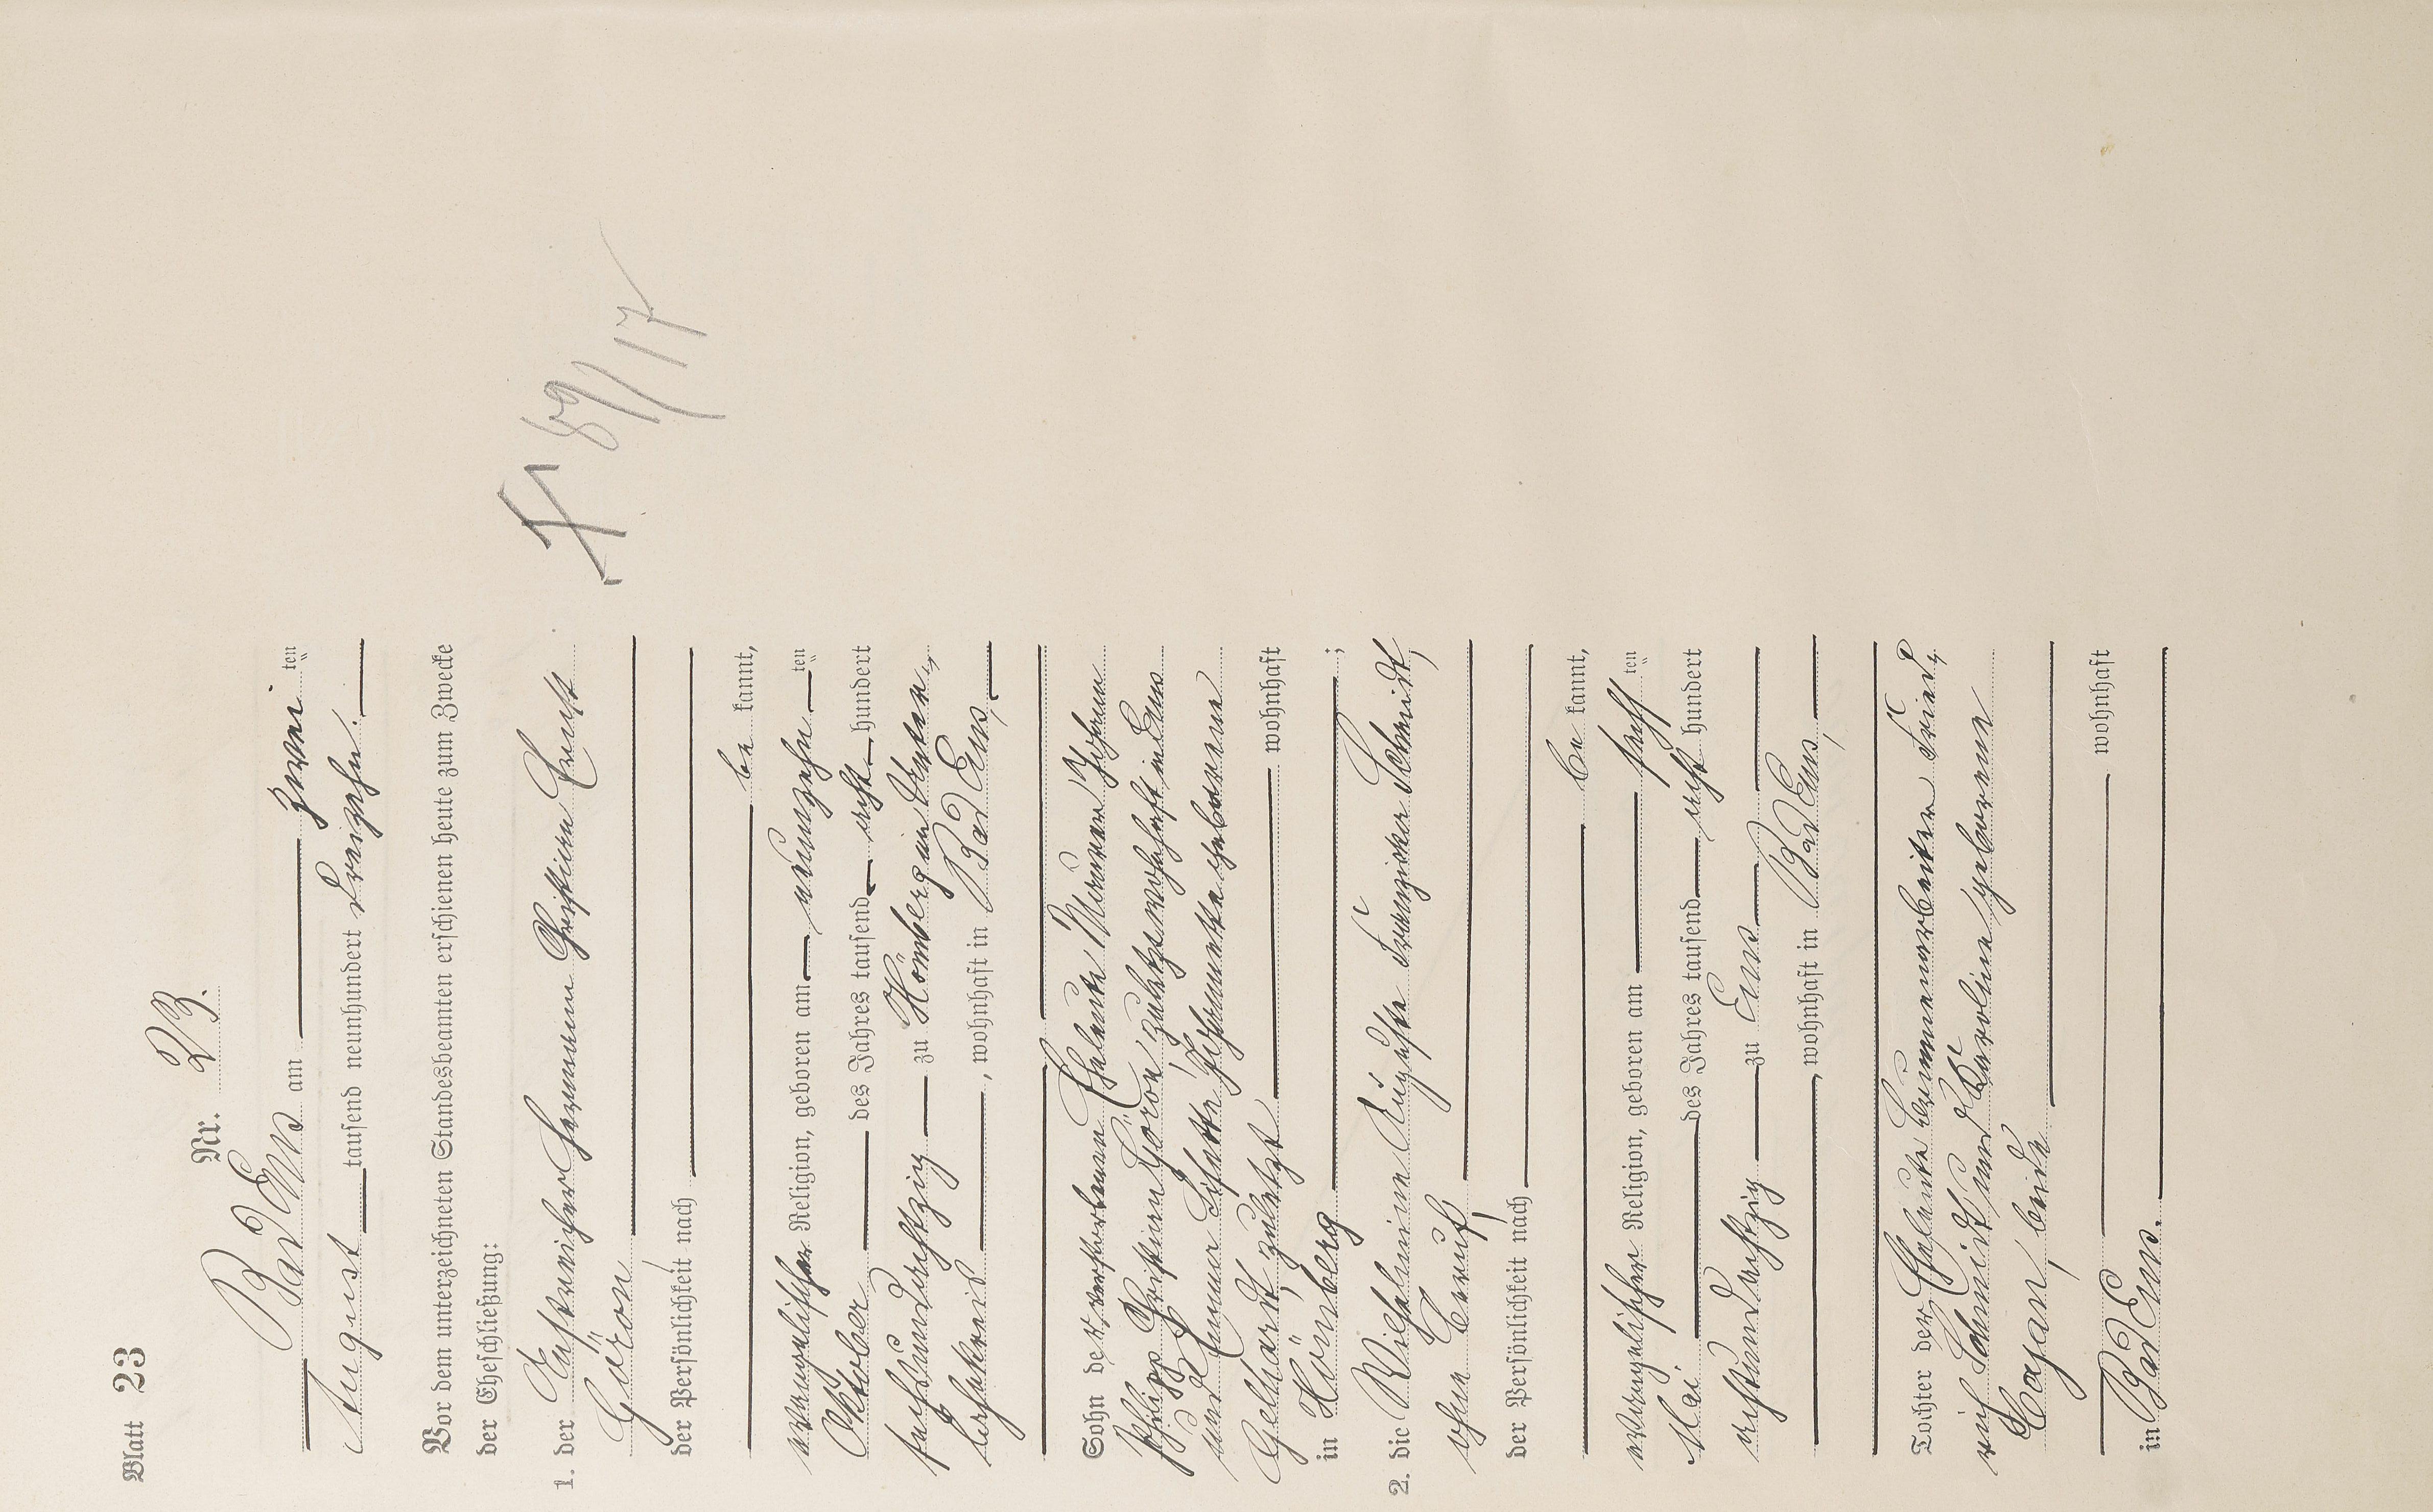 Blatt 23
Nr. 23.
Bad Ems am zwei ten
August tausend neunhundert dreizehn.
Vor dem unterzeichneten Standesbeamten erschienen heute zum Zwecke
der Eheschließung:
1. der Hermann Christian Ernst
Göron
der Persönlichkeit nach
be kannt,
evangelischer Religion, geboren am neunzehn ten
Oktober des Jahres tausend acht hundert
sechsundachtzig zu Hömberg im Unter-
lahnkreis, wohnhaft in Bad Ems,
Sohn der verstorbenen Eheleute Maurer Johann
Philipp Christian Göron, zuletzt wohnhaft in Ems
und Lisette Philippinette geborene
Gelhardt, zuletzt wohnhaft
in Hömberg ;
2. die Wilhelmine Auguste Franziska Schmidt,
ohne Beruf,
der Persönlichkeit nach
be kannt,
evangelischer Religion, geboren am elf ten
Mai des Jahres tausend acht hundert
achtundachtzig zu Ems
, wohnhaft in Bad Ems,
Tochter der Eheleute Brunnenarbeiter Fried-
rich Schmidt und Karoline geborene
beide
wohnhaft
in Bad Ems.
H 89/17